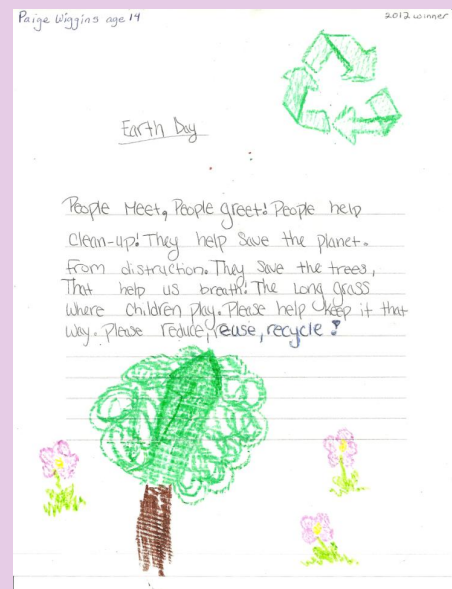 Paige Wiggins age 14
2012 winner
Earth Day
People Meet, People greet! People help
Clean-up! They help Save the planet.
From distruction. They Save the trees,
That help us breath! The Long grass
where children play. Please help keep it that
way. Please reduce, reuse, recycle!